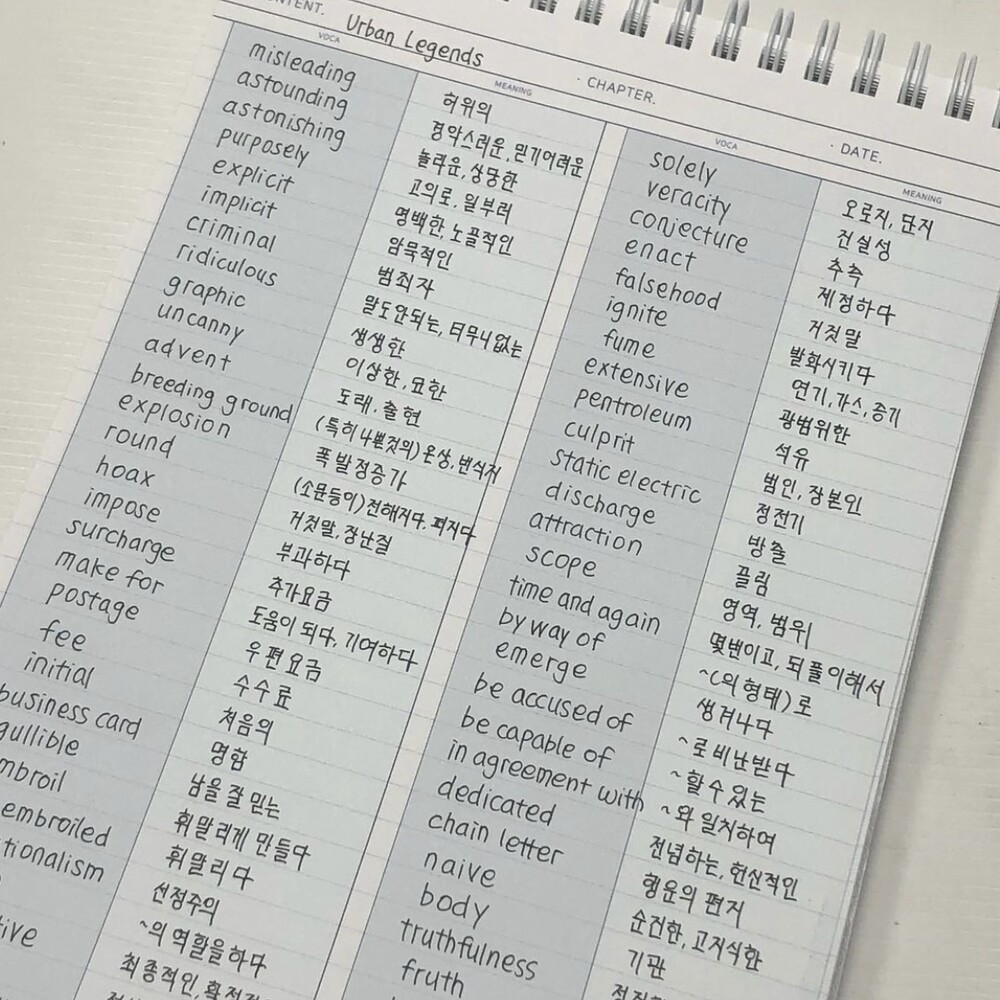 Urban Legends
CHAPTER.
DATE.
VOCA MEANING
misleading 허위의
astounding 경악스러운, 믿기어려운
astonishing 놀라운, 상당한
purposely 고의로, 일부러
explicit 명백한, 노골적인
implicit 암묵적인
criminal 범죄자
ridiculous 말도안되는, 터무니없는
graphic 생생한
uncanny 이상한, 묘한
advent 도래, 출현
breeding ground (특히 나쁜것의) 온상, 번식처
explosion 폭발정증가
round (소문등이) 전해지다, 퍼지다
hoax 거짓말, 장난질
impose 부과하다
surcharge 추가요금
make for 도움이 되다, 기여하다
postage 우편요금
fee 수수료
initial 처음의
business card 명함
gullible 남을 잘 믿는
휘말리게 만들다
embroiled 휘말리다
선정주의
~의 역할을하다
최종적인,
VOCA MEANING
solely 오로지, 단지
veracity 진실성
conjecture 추측
enact 제정하다
falsehood 거짓말
ignite 발화시키다
fume 연기, 가스, 증기
extensive 광범위한
pentroleum 석유
culprit 범인, 장본인
static electric 정전기
discharge 방출
attraction 끌림
scope 영역, 범위
time and again 몇번이고, 되풀이해서
by way of ~(의 형태)로
emerge 생겨나다
be accused of ~로 비난받다
be capable of ~할수있는
in agreement with ~와 일치하여
dedicated 전념하는, 헌신적인
chain letter 행운의 편지
naive 순진한, 고지식한
body 기관
truthfulness
fruth